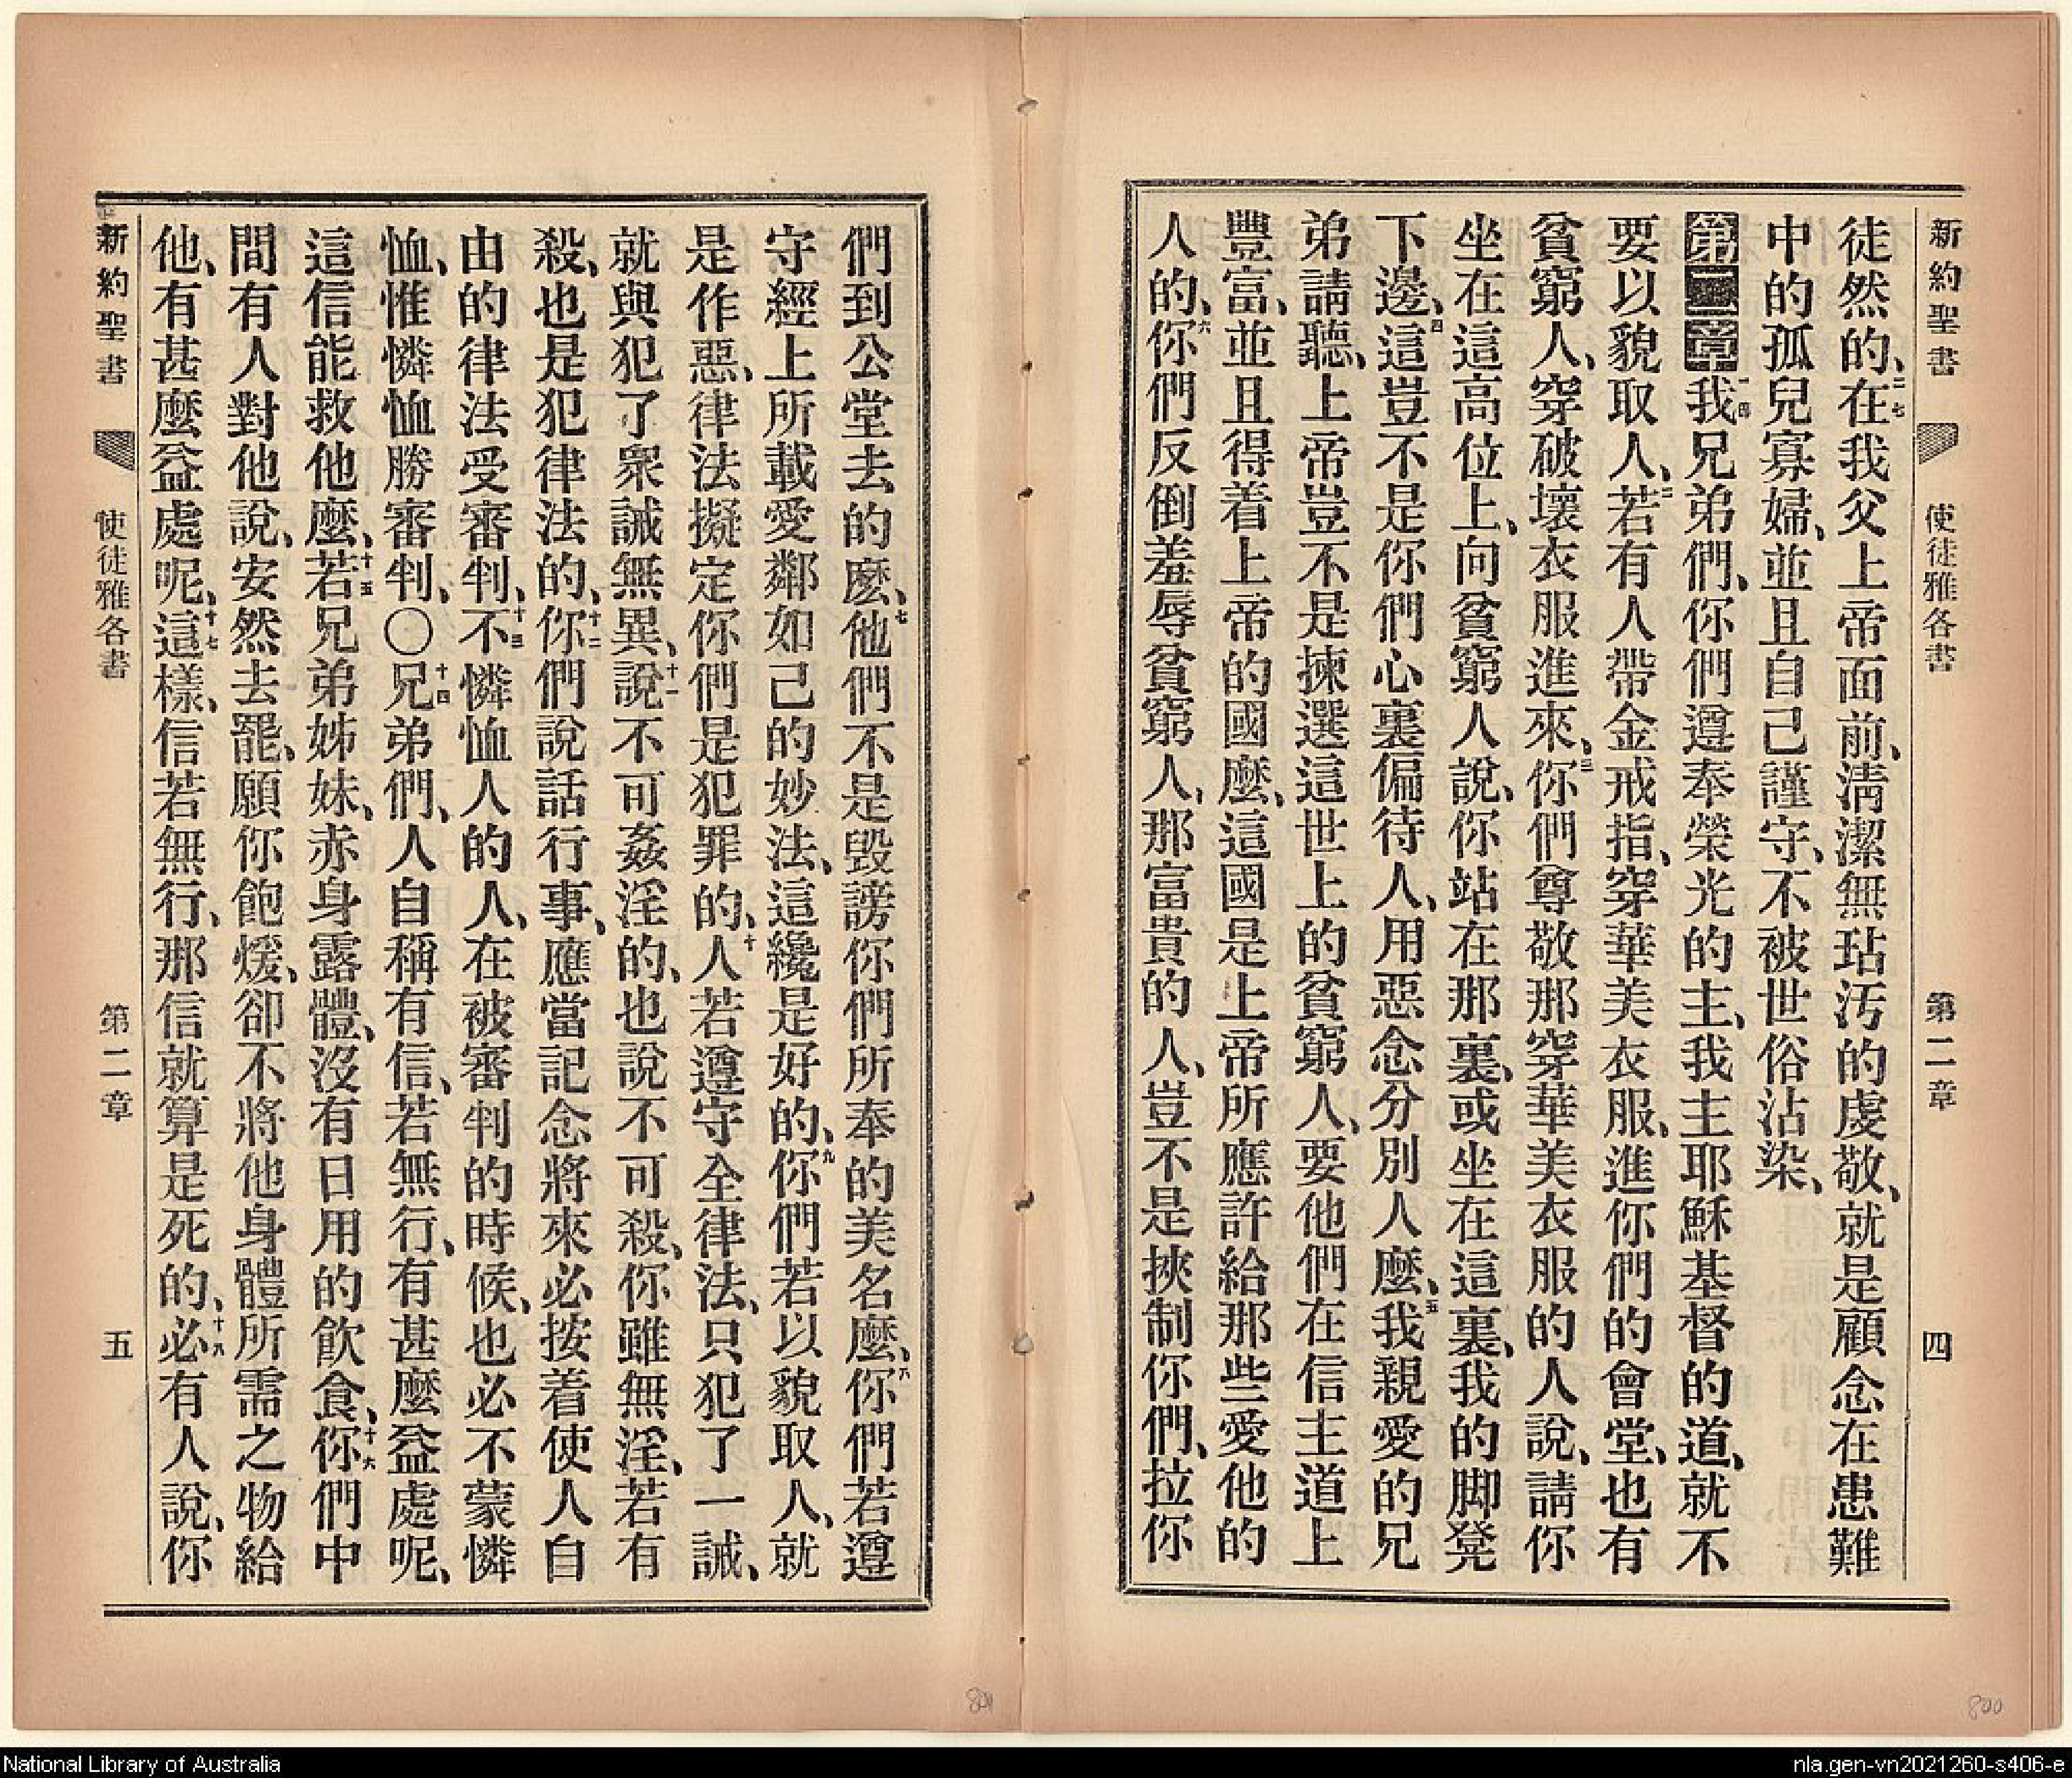 新約聖書 使徒雅各書 第二章 四
徒然的、二七在我父上帝面前、淸潔無玷汚的虔敬、就是顧念在患難
中的孤兒寡婦、並且自己謹守、不被世俗沾染、
第二章一我兄弟們、你們遵奉榮光的主、我主耶穌基督的道、就不
要以貌取人、二若有人帶金戒指、穿華美衣服、進你們的會堂、也有
貧窮人、穿破壞衣服進來、三你們尊敬那穿華美衣服的人說、請你
坐在這高位上、向貧窮人說、你站在那裏、或坐在這裏、我的脚凳
下邊、四這豈不是你們心裏偏待人、用惡念分別人麼、五我親愛的兄
弟請聽、上帝豈不是揀選這世上的貧窮人、要他們在信主道上
豐富、並且得着上帝的國麼、這國是上帝所應許給那些愛他的
人的、六你們反倒羞辱貧窮人、那富貴的人、豈不是挾制你們、拉你
們到公堂去的麼、七他們不是毀謗你們所奉的美名麼、八你們若遵
守經上所載愛鄰如己的妙法、這纔是好的、九你們若以貌取人、就
是作惡、律法擬定你們是犯罪的、十人若遵守全律法、只犯了一誡、
就與犯了衆誡無異、十一說不可姦淫的、也說不可殺、你雖無淫、若有
殺、也是犯律法的、十二你們說話行事、應當記念將來必按着使人自
由的律法受審判、十三不憐恤人的人、在被審判的時候、也必不蒙憐
恤、惟憐恤勝審判、〇十四兄弟們、人自稱有信、若無行、有甚麼益處呢、
這信能救他麼、十五若兄弟姊妹、赤身露體、沒有日用的飮食、十六你們中
間有人對他說、安然去罷、願你飽煖、卻不將他身體所需之物給
他、有甚麼益處呢、十七這樣、信若無行、那信就算是死的、十八必有人說、你
新約聖書 使徒雅各書 第二章 五
801
800
National Library of Australia
nla.gen-vn2021260-s406-e